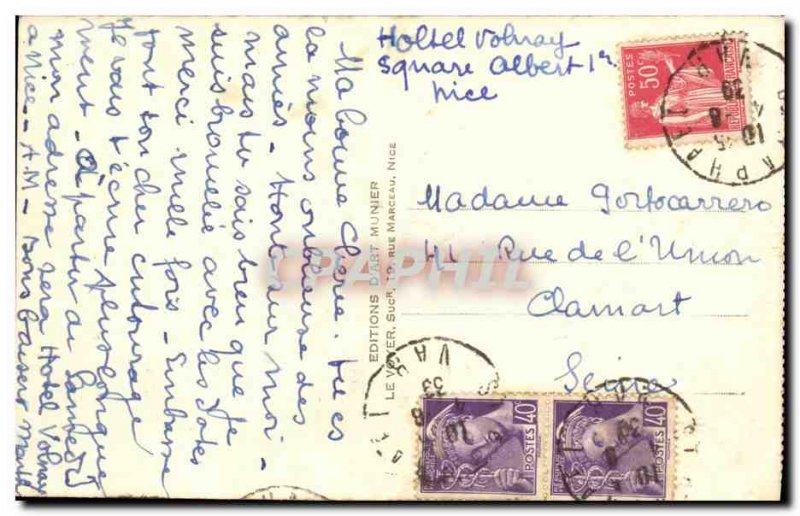 Holtel Volnay
Square Albert 1er
Nice
Madame Portocarrero
41 Rue de l'Union
Clamart
Seine
Ma bonne Chérie. Tu es
la moins oublieuse des
amies - Honte sur moi -
mais tu sais bien que je
suis brouillée avec les dates
merci mille fois - Embrasse
tout ton cher entourage
Je vous t'écrire plus longue
ment - A partir de Samedi
mon adresse sera Hotel Volnay
a Nice - A.M - Bons baisers
EDITIONS D'ART MUNIER
LE VOYER, SUCR, 12, RUE MARCEAU, NICE
CPAPHIL
POSTES 50c
RÉPUBLIQUE FRANÇAISE
POSTES 40c
POSTES 40c
VAR